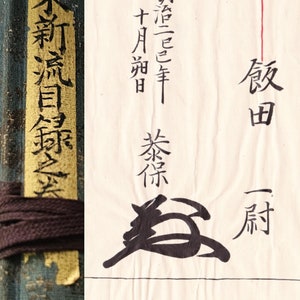 水新流目録之巻
飯田 一尉
明治二己巳年
十月朔日
恭保